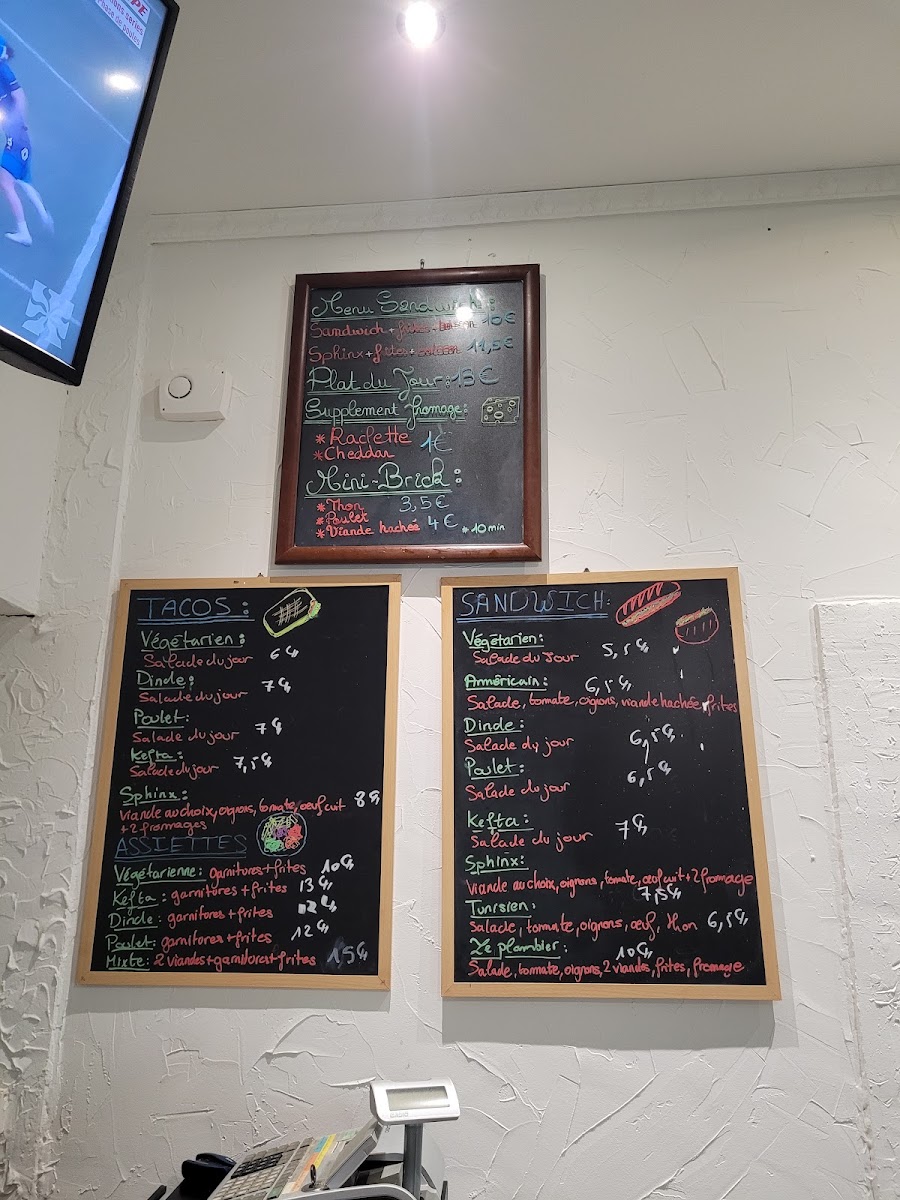 Phase de poules
Menu Sandwich:
Sandwich + frites + boisson 10€
Sphinx + frites + boisson 11,5€
Plat du Jour: 13€
Supplement fromage:
* Raclette 1€
* Cheddar
Mini-Brick:
* Thon 3,5€
* Poulet
* Viande hachée 4€ *10min
TACOS:
Végétarien:
Salade du jour 6€
Dinde:
Salade du jour 7€
Poulet:
Salade du jour 7€
Kefta:
Salade du jour 7,5€
Sphinx:
Viande au choix, oignons, tomate, oeuf cuit 8€
+2 fromages
ASSIETTES
Végétarienne: garnitores+frites 10€
Kefta: garnitores+frites 13€
Dinde: garnitores+frites 12€
Poulet: garnitores+frites 12€
Mixte: 2 viandes+garnitores+frites 15€
SANDWICH:
Végétarien:
Salade du Jour 5,5€
Américain: 6,5€
Salade, tomate, oignons, viande hachée, frites
Dinde:
Salade du jour 6,5€
Poulet:
Salade du jour 6,5€
Kefta:
Salade du jour 7€
Sphinx:
Viande au choix, oignons, tomate, oeuf cuit+2 fromage
7,5€
Tunisien:
Salade, tomate, oignons, oeuf, thon 6,5€
Le plombier: 10€
Salade, tomate, oignons, 2 viandes, frites, fromage
CASIO